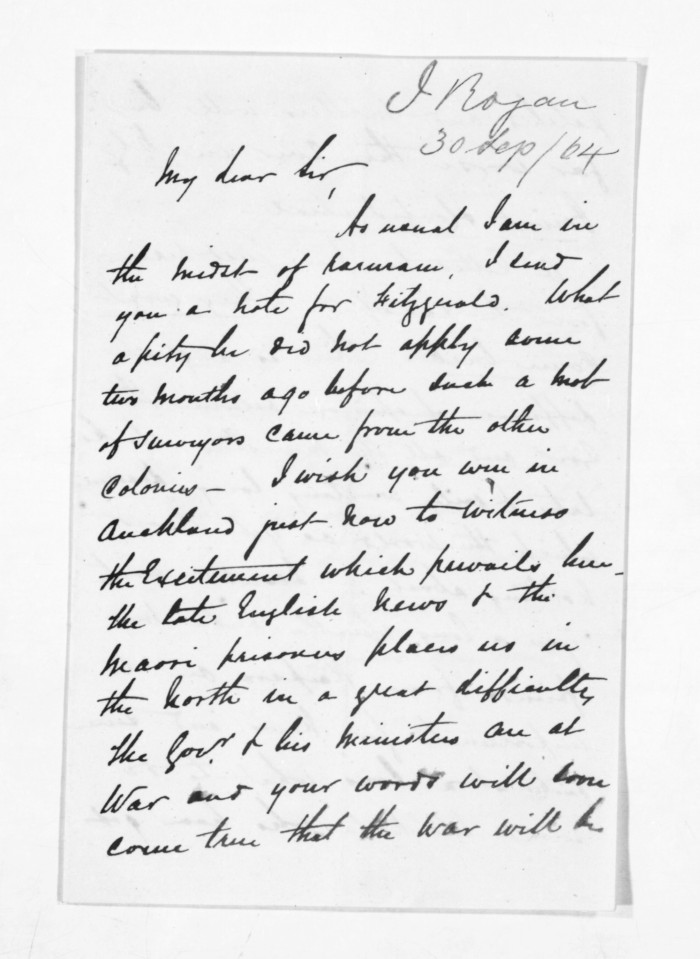 J Rogan
30 Sep/64
My dear Sir,
As usual I am in
the midst of I send
you a note for Fitzgerald. What
a pity he did not apply some
two months ago before such a mob
of surveyors came from the other
Colonies – I wish you were in
Auckland just now to witness
the Excitement which prevails here –
the late English News & the
Maori prisoners places us in
the North in a great difficulty
the Govr. & his Ministers are at
War and your words will soon
come true that the War will be